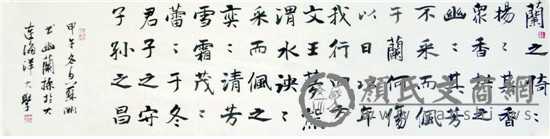 蘭之猗々
揚々其香
衆香拱之
幽々其芳
不采而佩
于蘭何傷
以日以年
我行四方
文王夢熊
渭水泱々
采而佩之
奕々清芳
雪霜茂々
蕾々于冬
君子之守
子孫之昌
甲午冬月蘇洲
書幽蘭操於大
連海洋大學
顔氏文商網